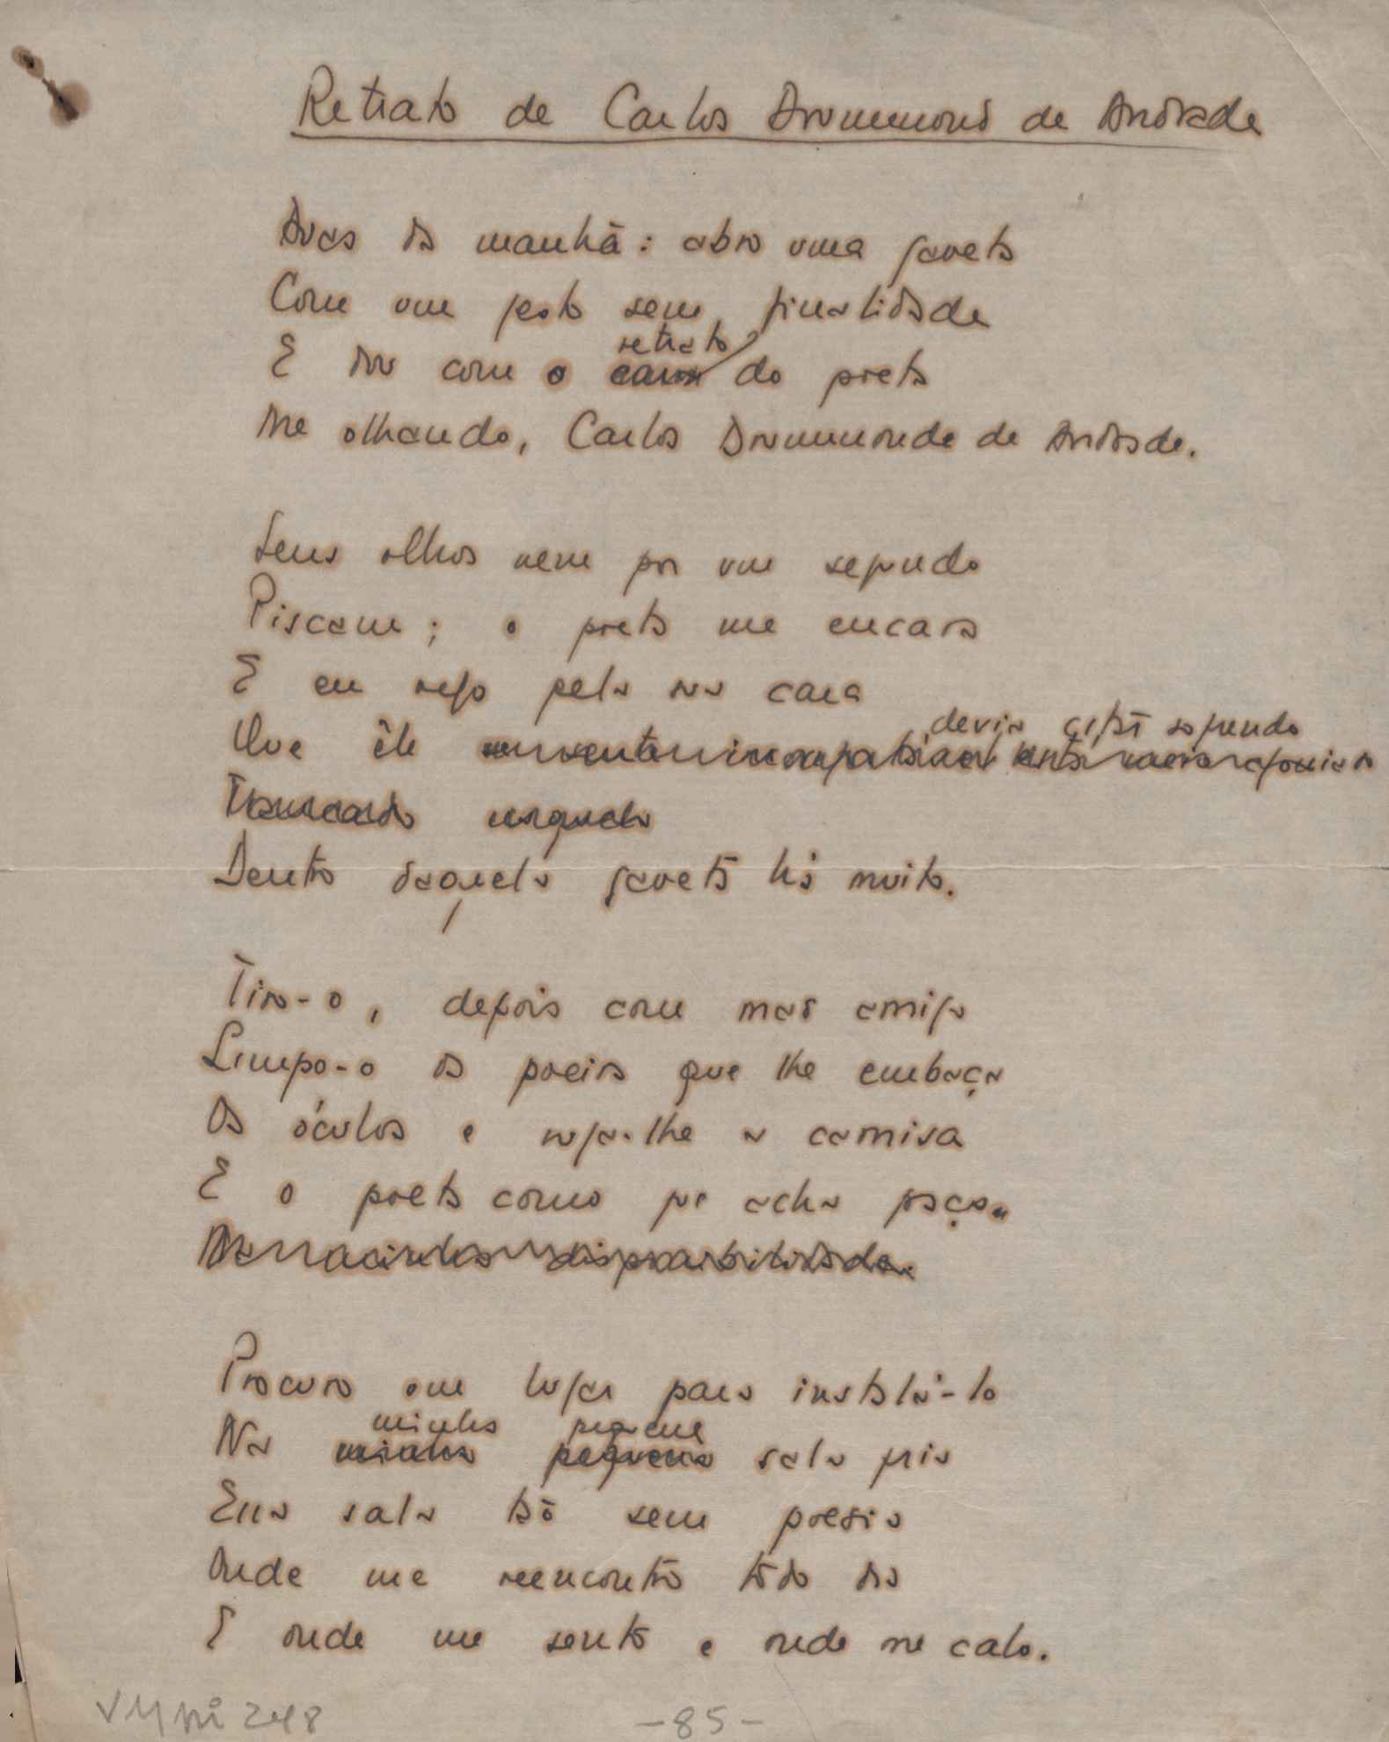 Retrato de Carlos Drummond de Andrade
Duas da manhã: abro uma gaveta
Com um gesto sem finalidade
retrato
E dou com o do poeta
Me olhando, Carlos Drummonde de Andrade.
Seus olhos nem por um segundo
Piscam; o poeta me encara
E eu vejo pela sua cara
devia estar sofrendo
Que êle
Trancado naquela
Dentro daquela gaveta há muito.
Tiro-o, depois com mão amiga
Limpo-o da poeira que lhe embaça
Os óculos e suja-lhe a camisa
E o poeta como que acha graça.
disponibilidade.
Procuro um lugar para instalá-lo
minha pequena
Na minha pequena sala fria
Essa sala tão sem poesia
Onde me reencontro todo dia
E onde me sento e onde me calo.
VMpi 248
-85-